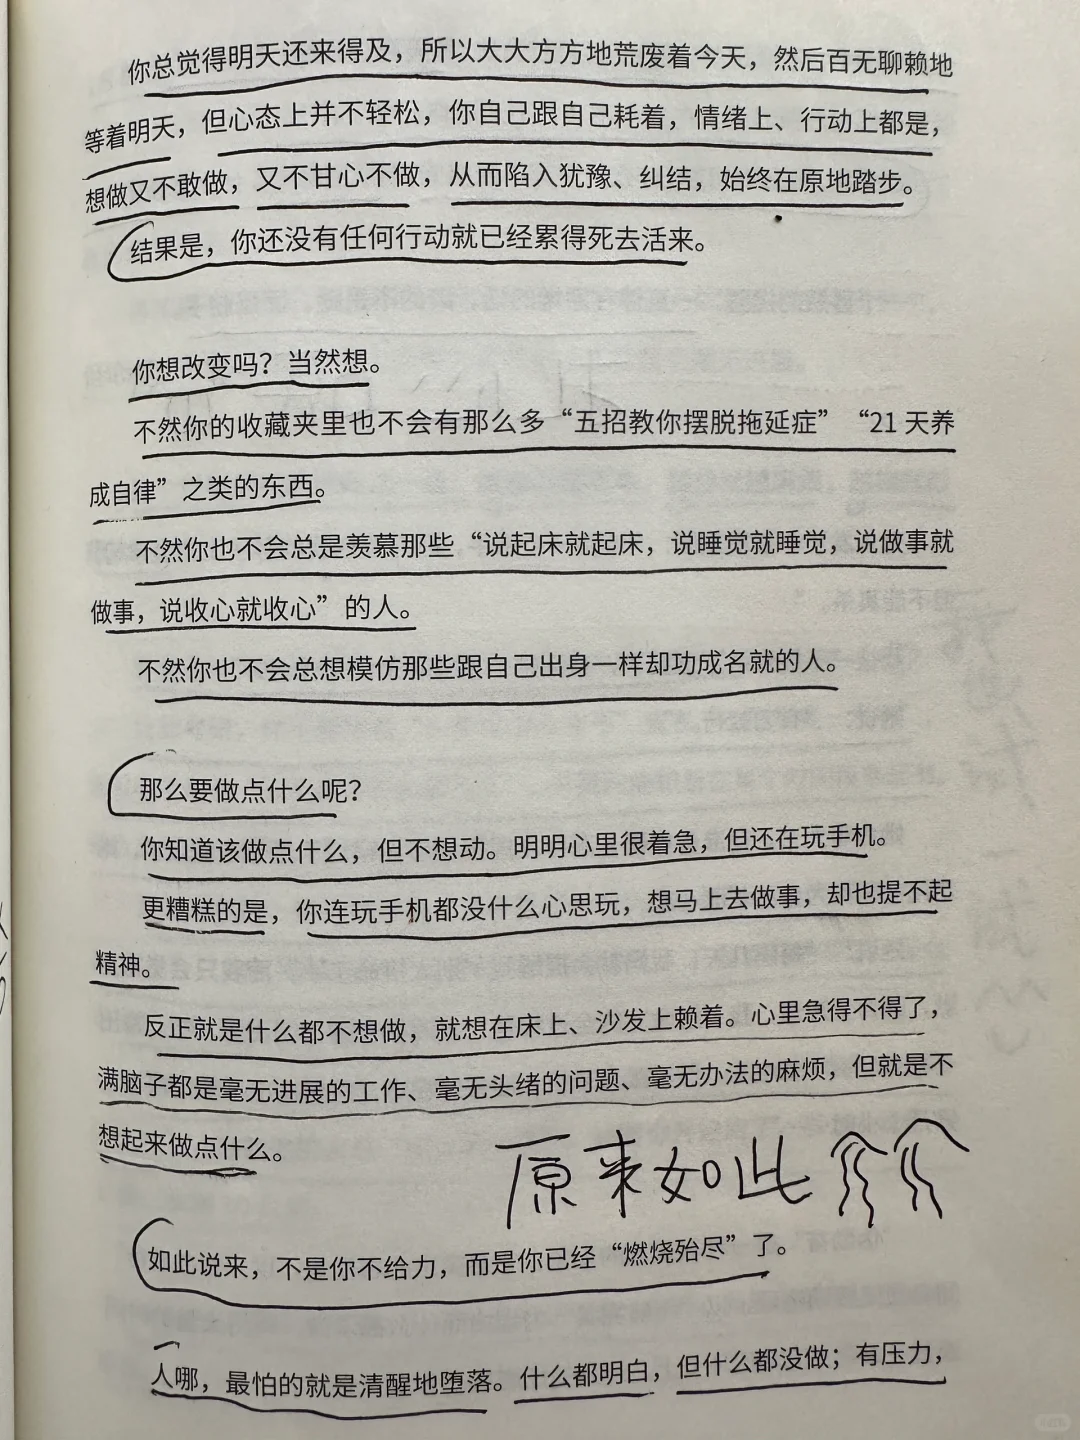 你总觉得明天还来得及，所以大大方方地荒废着今天，然后百无聊赖地
等着明天，但心态上并不轻松，你自己跟自己耗着，情绪上、行动上都是，
想做又不敢做，又不甘心不做，从而陷入犹豫、纠结，始终在原地踏步。
结果是，你还没有任何行动就已经累得死去活来。
你想改变吗？当然想。
不然你的收藏夹里也不会有那么多“五招教你摆脱拖延症”“21天养
成自律”之类的东西。
不然你也不会总是羡慕那些“说起床就起床，说睡觉就睡觉，说做事就
做事，说收心就收心”的人。
不然你也不会总想模仿那些跟自己出身一样却功成名就的人。
那么要做点什么呢？
你知道该做点什么，但不想动。明明心里很着急，但还在玩手机。
更糟糕的是，你连玩手机都没什么心思玩，想马上去做事，却也提不起
精神。
反正就是什么都不想做，就想在床上、沙发上赖着。心里急得不得了，
满脑子都是毫无进展的工作、毫无头绪的问题、毫无办法的麻烦，但就是不
想起来做点什么。
原来如此
如此说来，不是你不给力，而是你已经“燃烧殆尽”了。
人哪，最怕的就是清醒地堕落。什么都明白，但什么都没做；有压力，